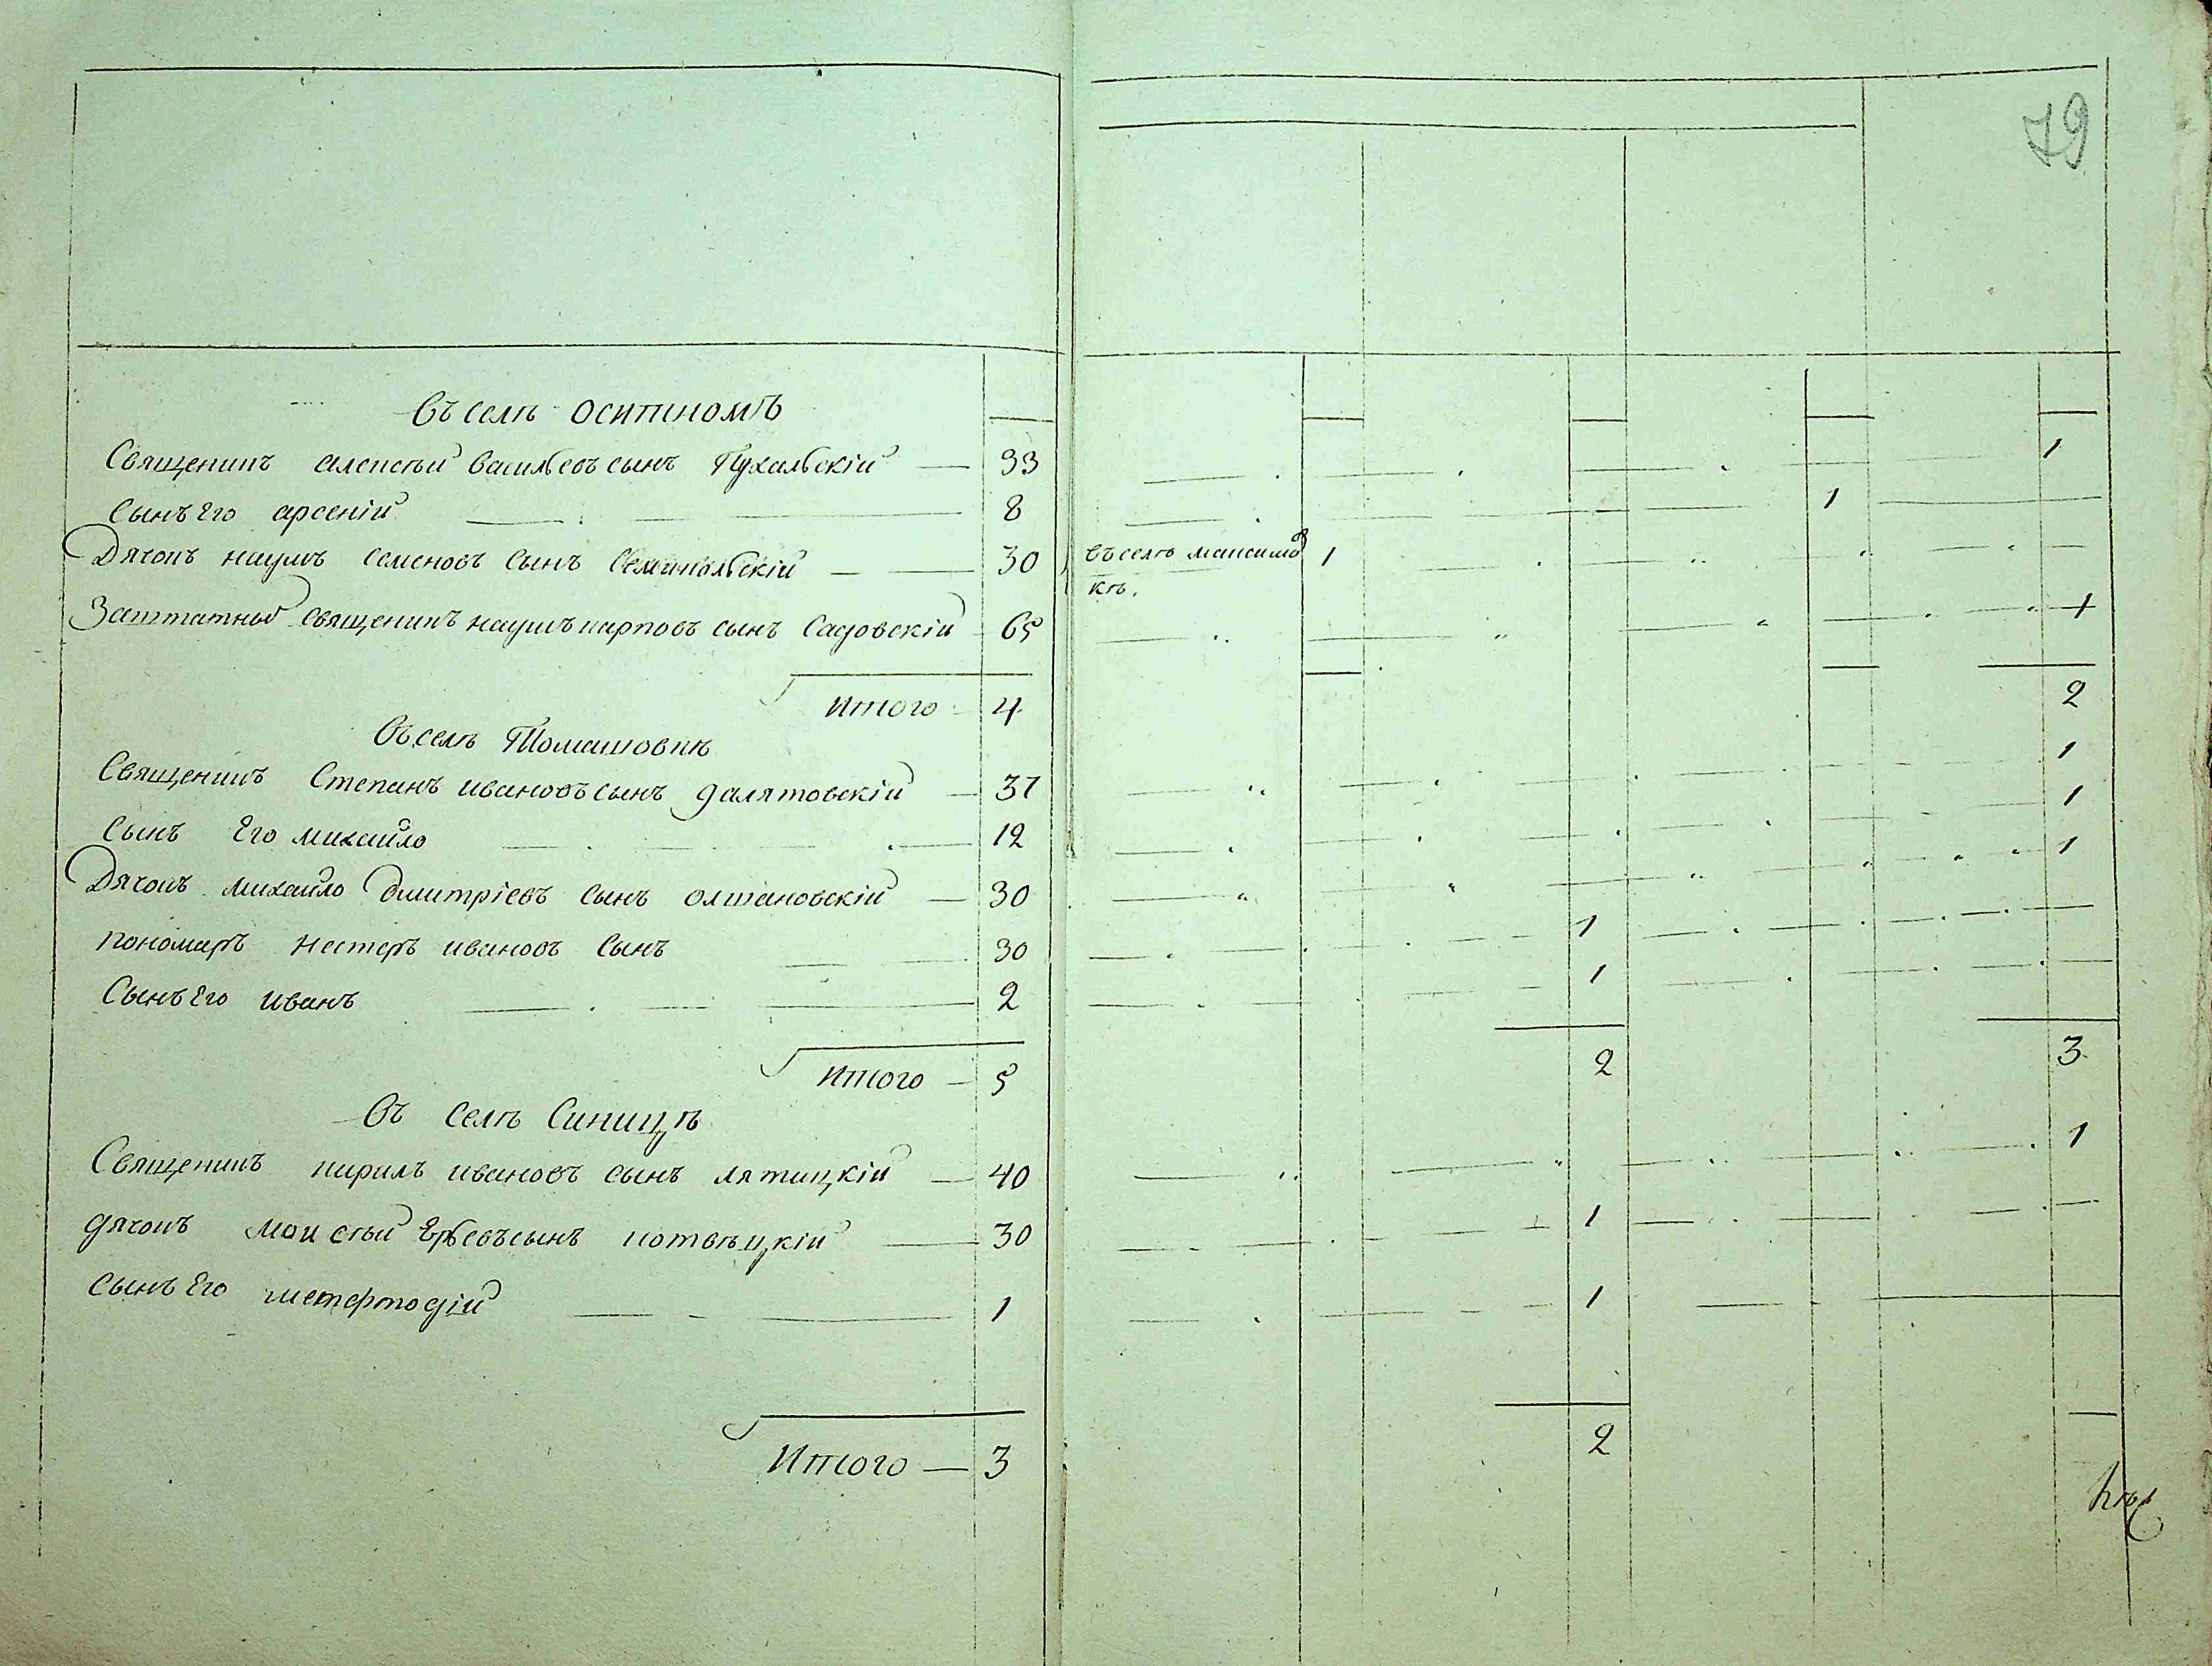 79
въ селѣ оситномъ
Священикъ алексѣй васильевъ сынъ Пухальскій — 33 1
сынъ Его арсеній 8 1
Дячокъ наумъ семеновъ сынъ 30 въ селѣ максимов 1
кѣ.
Заштатный священикъ наумъ карповъ сынъ Садовскій 65 1
Итого 4 2
въ селѣ Томашовкѣ 1
Священикъ Степанъ ивановъ сынъ далятовскій — 37 1
сынъ Его михайло 12 1
Дячокъ михайло дмитріевъ сынъ олшановскій — 30
пономарь нестеръ ивановъ сынъ 30 1
Сынъ Его иванъ 2 1
Итого — 5 2 3
въ Селѣ Синицѣ
Священикъ кирилъ ивановъ сынъ — 40 1
дячокъ моисѣй сынъ 30 1
сынъ Его 1 1
Итого — 3 2